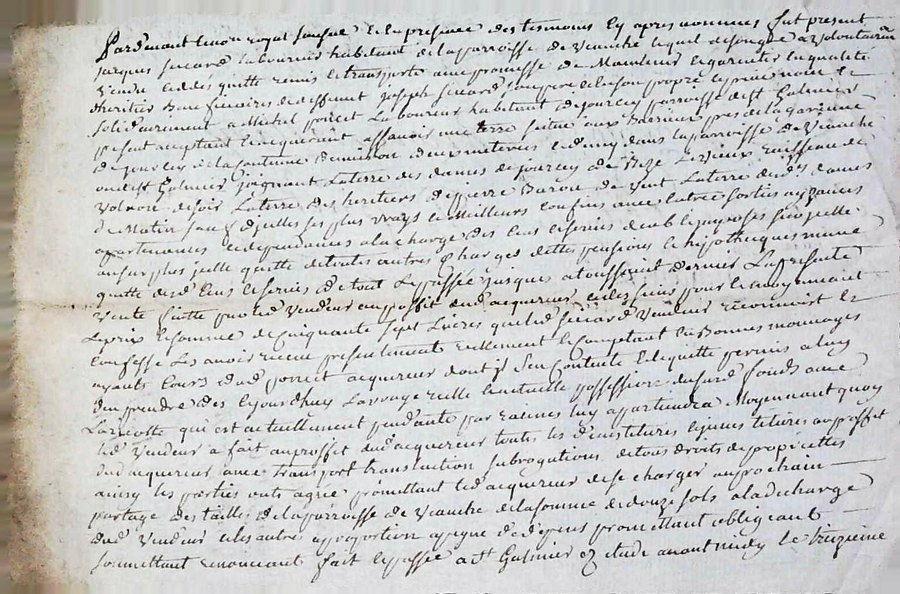 Pardevant le no.re royal soussigné et en la presence des tesmoins cy apres nommes fut present
jacques sicard laboureur habitant de la parroisse de Veauche lequel de son gré a Volontairem
Vendu cedé quitte remis et transporte avec promesse de Maintenir et garentir en qualité
dheritier Beneficiaire de deffunct joseph sicard son pere et de son propre et privé nom et
solidairement a Michel poncet Laboureur habitant de jourcey parroisse de st Galmier
present acceptant et acquerant assavoir une terre situé aux Barraux pres de la garenne
de jourcey de la contenue denviron deux meterees et demy dans la parroisse de Veauche
ou de st Galmier joignant La terre des dames de jourcey de Bize Le Vieux ruisseau de
Volvon de soir La terre des heritiers de pierre Barou de Vent La terre desd dames
de Matin sauf djcelle ses plus Vrays et Meilleurs confins avec entrée sorties aysances
apartenances et dependances a la charge des cens et servis deub et payes sur jcelle
au surplus jcelle quitte de toutes autres charges dettes pensions et hypotheques mesme
quitte desd cens et servis de tout Le passé jusques a toussaint dernier La presente
Vente faitte par led Vendeur au proffit dud acquereur et les siens pour et moyennant
Le prix et somme de Cinquante sept Livres que led sicard Vendeur reconnoist et
confesse Les avoir receu presentement reellement et Comptant en Bonnes monnoyes
ayants Cours dud poncet acquereur dont jl sen Contente et Le quitte permis a luy
den prendre des ce jourdhuy La vraye reelle et actuelle possession dud fonds avec
La recolte qui est actuellement pendante par racines luy apartiendra Moyennant quoy
led Vendeur a fait au proffit dud acquereur toutes les devestitures et jnvestitures au proffit
dud acquereur avec transport translation subrogations de tous droits de proprietté
ainsy les parties ont agreé promettant led acquereur de se charger au prochain
partage des tailles de la parroisse de Veauche de la somme de douze sols a la decharge
dud Vendeur et les autres a proportion a peyne de depens promettant obligeant
soumettant renonceant fait et passé a st Galmier ez etude avant midy le